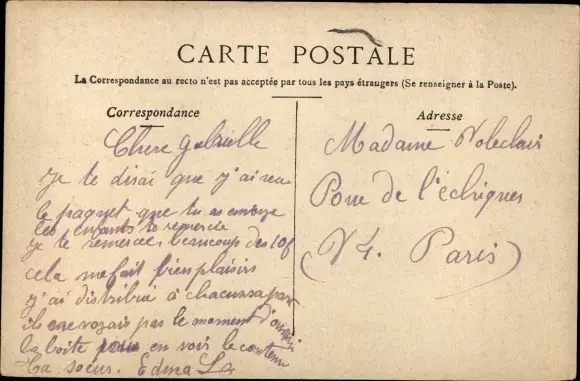 CARTE POSTALE
La Correspondance au recto n'est pas acceptée par tous les pays étrangers (Se renseigner à la Poste).
Correspondance
Chere Gabrielle
je te dirai que j'ai recu
le paquet que tu as envoye
les enfants te remercie
je te remercie beaucoup des 10f
cela me fait bien plaisirs
j'ai distribué à chacun sa part
ils ne voyais pas le moment d'ouvrir
la boite pour en voir le contenu
ta soeur. Edma L
Adresse
Madame
de l'échiquier
Paris